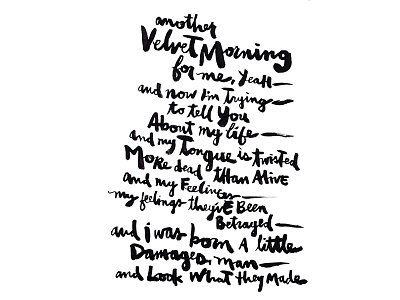 another
Velvet Morning
for me, yeah—
and now I'm Trying—
to tell You
About my life—
and my Tongue is twisted
More dead than Alive
and my Feelings—
my feelings they've Been
Betrayed—
and i was born A little
Damaged, man—
and Look What They Made